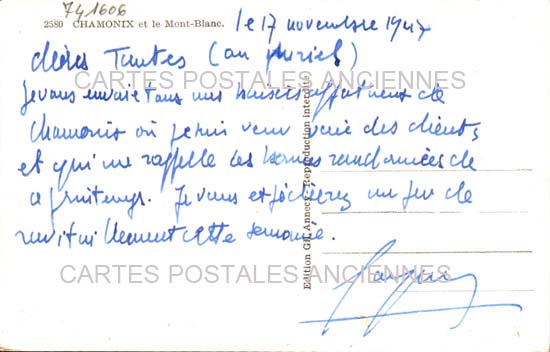 741606
2580 CHAMONIX et le Mont-Blanc.
le 17 novembre 1947
chères Tantes (au pluriel)
CARTES POSTALES ANCIENNES
Je vous envoie tous mes baisers affectueux de
Chamonix où je suis venu voir des clients
et qui me rappelle les bonnes randonnées de
ce printemps. Je vous expédierez un peu de
ravitaillement cette semaine.
CARTES POSTALES ANCIENNES
Edition Gil Annecy. Reproduction interdite